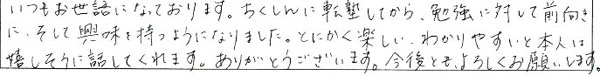 いつもお世話になっております。ちくしんに転塾してから、勉強に対して前向き
に、そして興味を持つようになりました。とにかく楽しい、わかりやすいと本人は
嬉しそうに話してくれます。ありがとうございます。今後とも、よろしくお願いします。